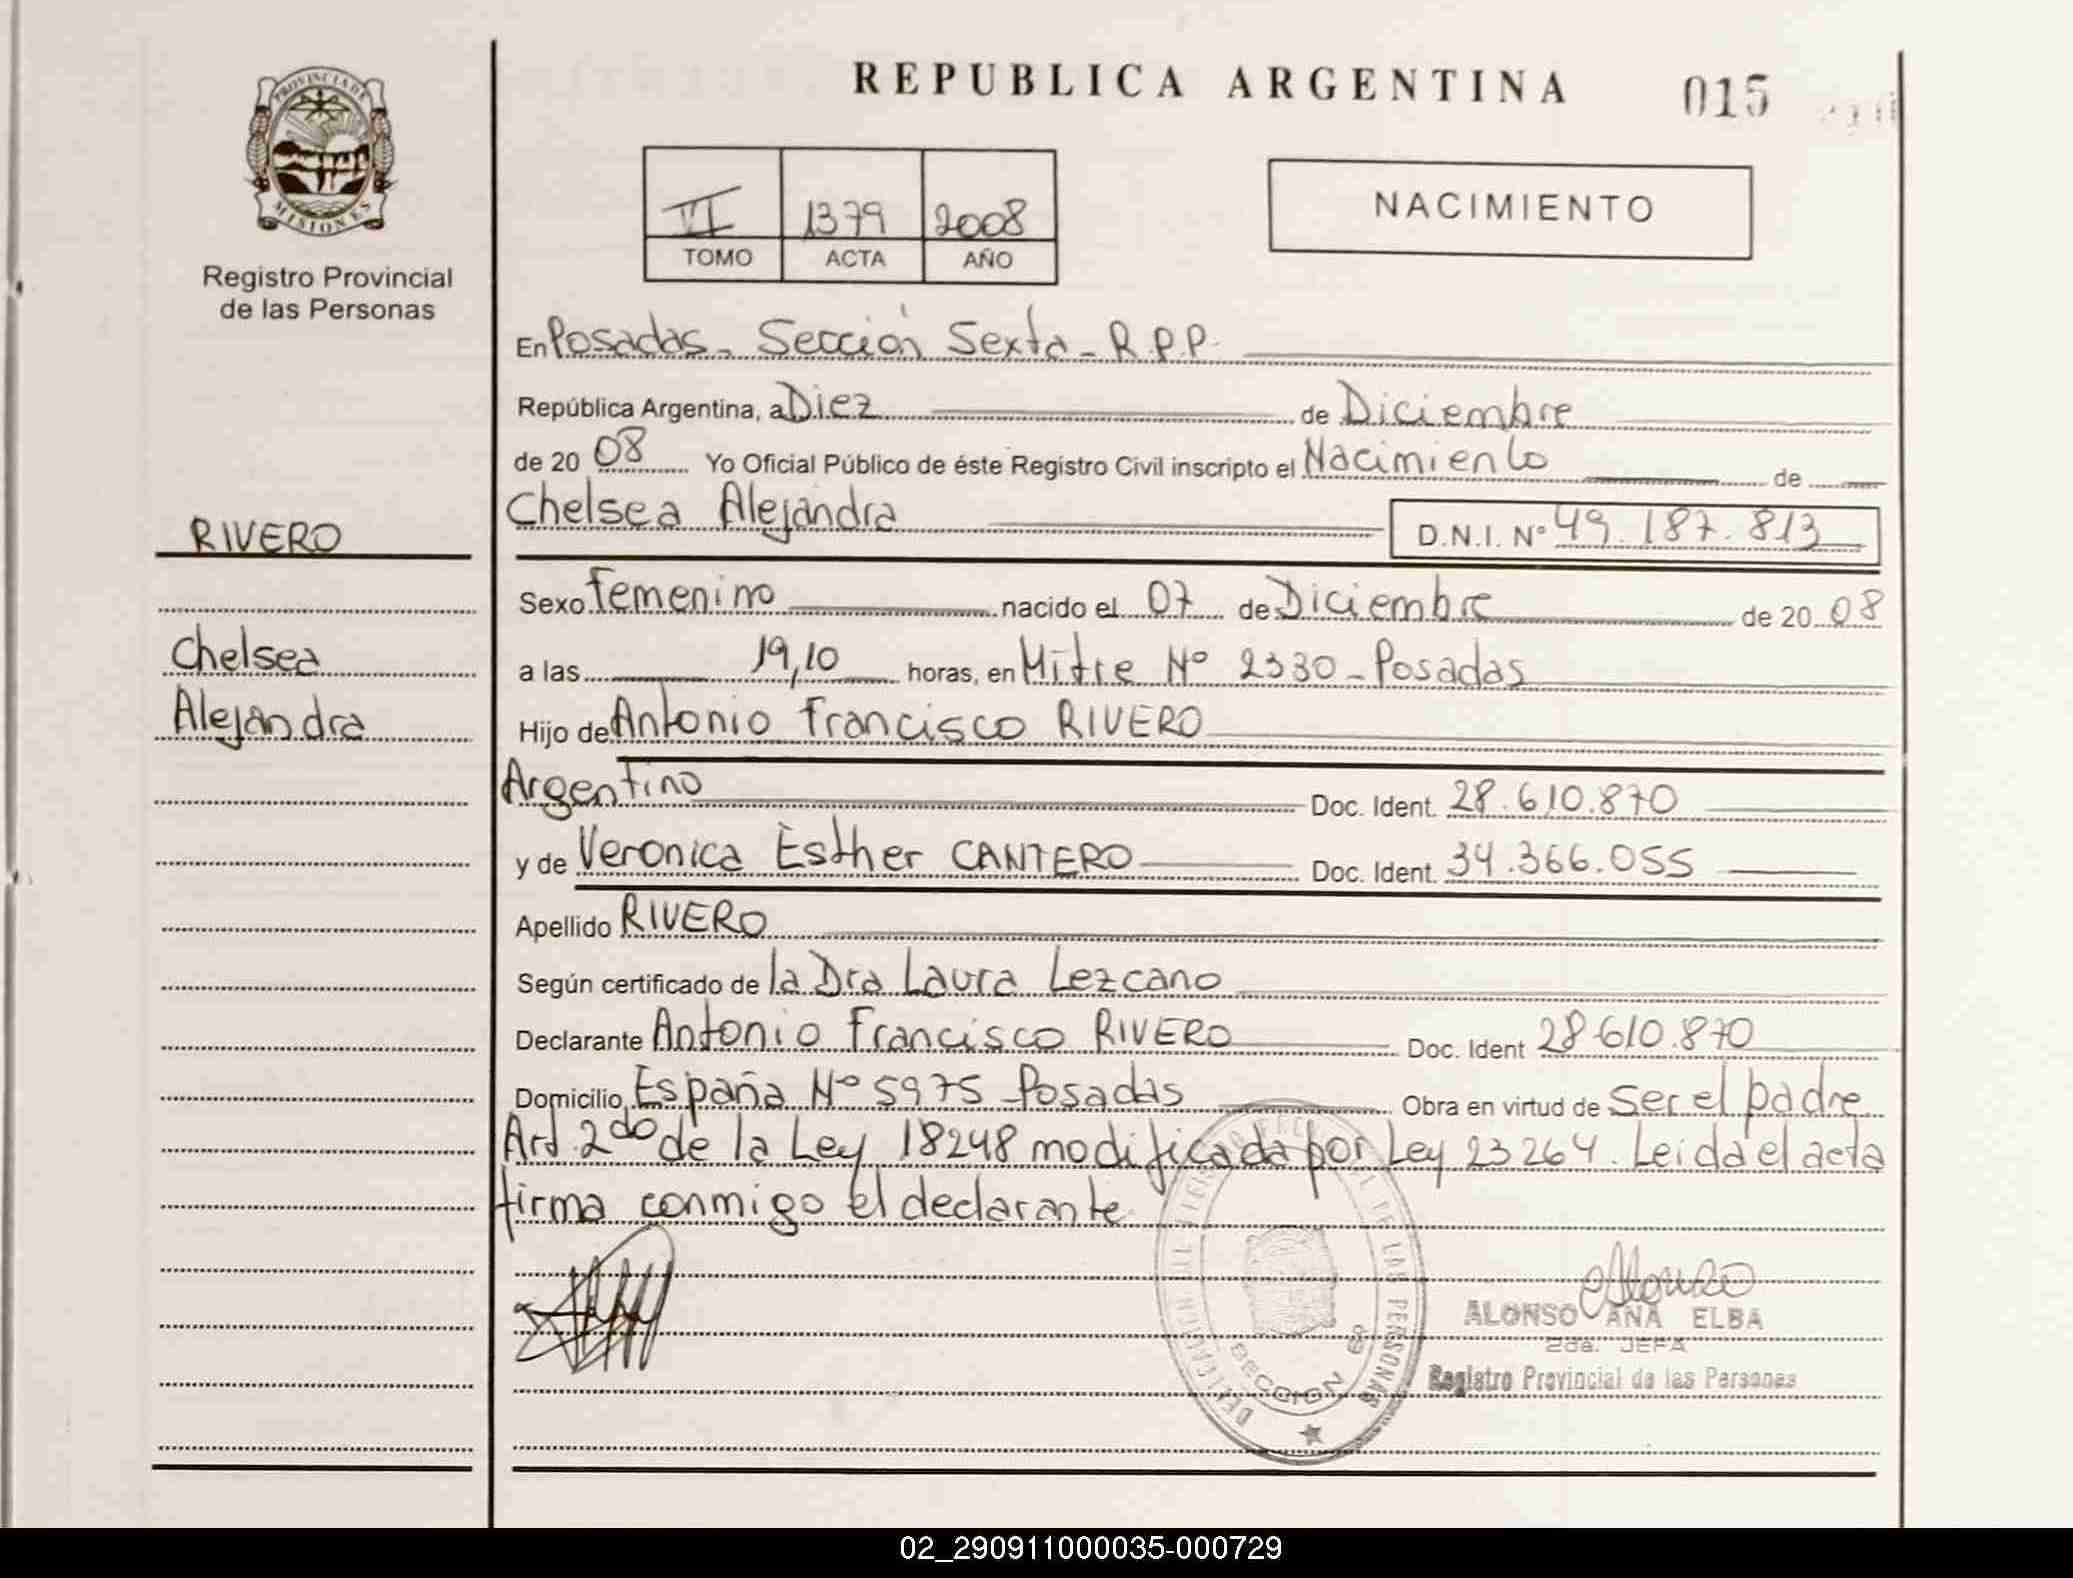 REPUBLICA ARGENTINA
015
PROVINCIA DE
MISIONES
Registro Provincial
de las Personas
VI 1379 2008
TOMO ACTA AÑO
NACIMIENTO
En Posadas - Sección Sexta - R.P.P.
República Argentina, a Diez de Diciembre
de 20 08 Yo Oficial Público de éste Registro Civil inscripto el Nacimiento de
Chelsea Alejandra D.N.I. Nº 49.187.813
RIVERO
Chelsea
Alejandra
Sexo Femenino nacido el 07 de Diciembre de 20 08
a las 19,10 horas, en Mitre Nº 2330 - Posadas
Hijo de Antonio Francisco RIVERO
Argentino Doc. Ident. 28.610.870
y de Veronica Esther CANTERO Doc. Ident. 34.366.055
Apellido RIVERO
Según certificado de la Dra Laura Lezcano
Declarante Antonio Francisco RIVERO Doc. Ident 28.610.870
Domicilio España Nº 5975 Posadas Obra en virtud de Ser el padre
Art. 2do de la Ley 18248 modificada por Ley 23264. Leida el acta
firma conmigo el declarante
ALONSO ANA ELBA
2da. JEFA
Registro Provincial de las Personas
DE LAS PERSONAS
SECCION 6º
02_290911000035-000729